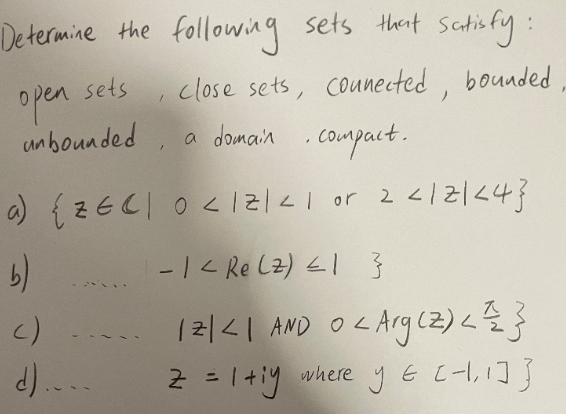 Determine the following sets that satisfy :
open sets , close sets, connected , bounded ,
unbounded , a domain . compact .
a) { z ∈ ℂ | 0 < |z| < 1 or 2 < |z| < 4 }
b) ...... -1 < Re(z) ≤ 1 }
c) ...... |z| < 1 AND 0 < Arg(z) < π/2 }
d) .... z = 1 + iy where y ∈ [-1, 1] }